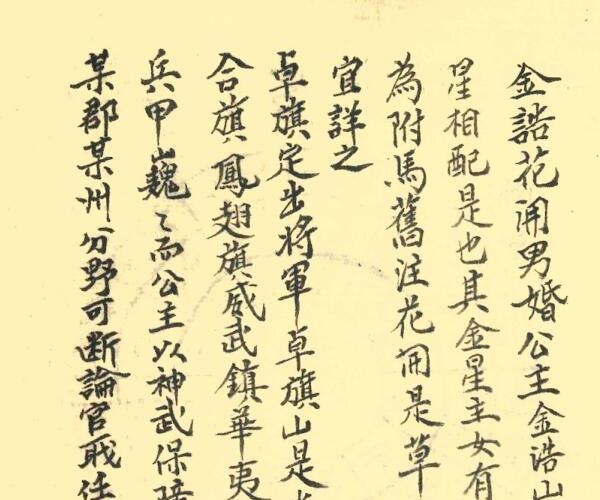 金誥花開男婚公主金誥山
星相配是也其金星主女有
為附馬舊注花開是草
宜詳之
卓旗定出將軍卓旗山是
合旗鳳翅旗威武鎮華夷
兵甲巍〻而公主以神武保障
某郡某州分野可斷論官職任